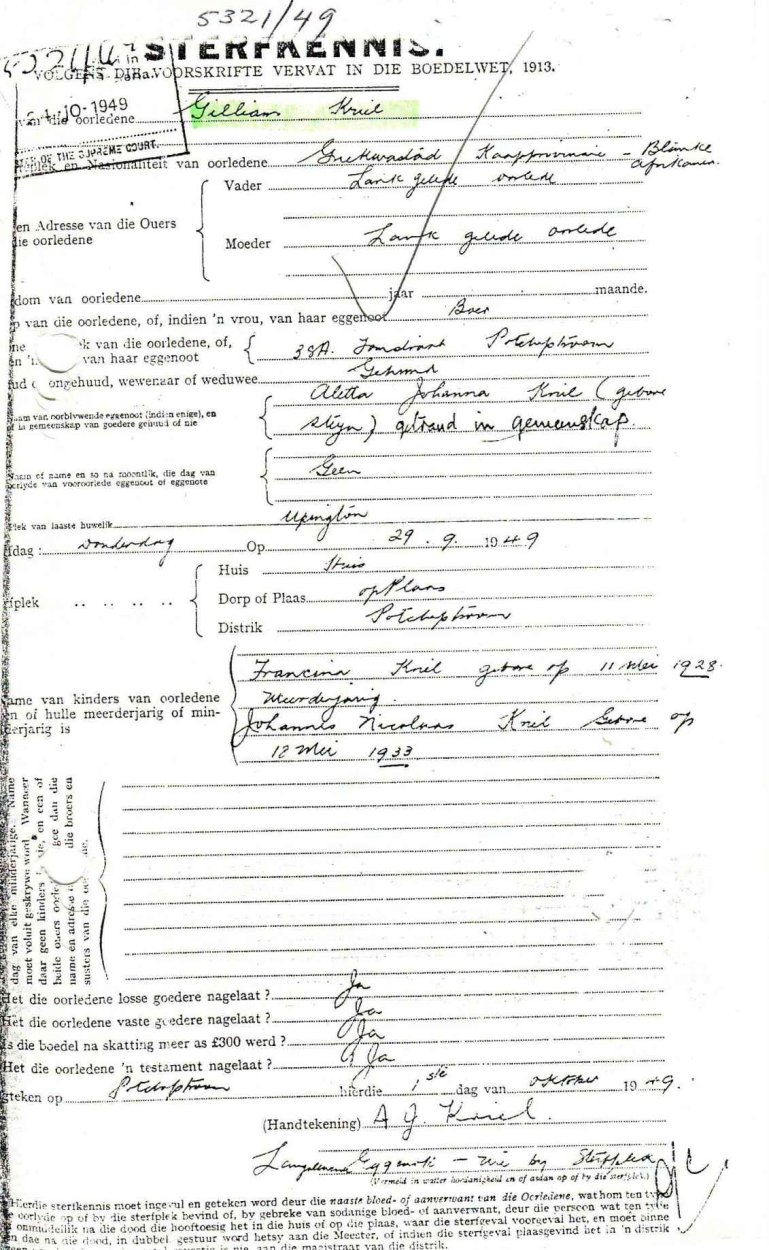 5321/49
STERFKENNIS.
VOLGENS DIE VOORSKRIFTE VERVAT IN DIE BOEDELWET, 1913.
21-10-1949
OF THE SUPREME COURT.
van die oorledene Gilliam Kriel
en Nasionaliteit van oorledene Griekwastad Kaapprovinsie - Blanke Afrikaner
Vader Lank gelede oorlede
en Adresse van die Ouers
die oorledene
Moeder Lank gelede oorlede
dom van oorledene jaar maande.
p van die oorledene, of, indien 'n vrou, van haar eggenoot Boer
k van die oorledene, of,
van haar eggenoot
38A. Potchefstroom
ongehuud, wewenaar of weduwee Gehuud
Naam van oorblywende eggenoot (indien enige), en
of in gemeenskap van goedere gehuud of nie
Aletta Johanna Kriel (gebore
Steyn) getroud in gemeenskap.
Naam of name en so na moontlik, die dag van
oorlyde van vooroorlede eggenoot of eggenote
Geen
Plek van laaste huwelik Upington
fdag : Donderdag Op 29 . 9. 1949
Huis Huis
rfplek Dorp of Plaas op Plaas
Distrik Potchefstroom
Name van kinders van oorledene
en of hulle meerderjarig of min-
derjarig is
Francina Kriel gebore op 11 Mei 1928.
Meerderjarig.
Johannes Nicolaas Kriel Gebore op
12 Mei 1933
dag van elke minderjarige. Name
moet voluit geskrywe word. Wanneer
daar geen kinders is nie, en een of
beide ouers oorlede gee dan die
name en adresse die broers en
susters van die
Het die oorledene losse goedere nagelaat ? Ja
Het die oorledene vaste goedere nagelaat ? Ja
Is die boedel na skatting meer as £300 werd ? Ja
Het die oorledene 'n testament nagelaat ? Ja
geteken op Potchefstroom hierdie 1ste dag van Oktober 1949.
(Handtekening) A J. Kriel.
Langslewende Eggenote - nie by Sterfplek
(Vermeld in watter hoedanigheid en of asdan op of by die sterfplek.)
Hierdie sterfkennis moet ingevul en geteken word deur die naaste bloed- of aanverwant van die Oorledene, wat hom ten tyde
oorlyde op of by die sterfplek bevind of, by gebreke van sodanige bloed- of aanverwant, deur die persoon wat ten tyde
onmiddellik na die dood die hooftoesig het in die huis of op die plaas, waar die sterfgeval voorgeval het, en moet binne
dae na die dood, in dubbel, gestuur word hetsy aan die Meester, of indien die sterfgeval plaasgevind het in 'n distrik
nie, aan die magistraat van die distrik.